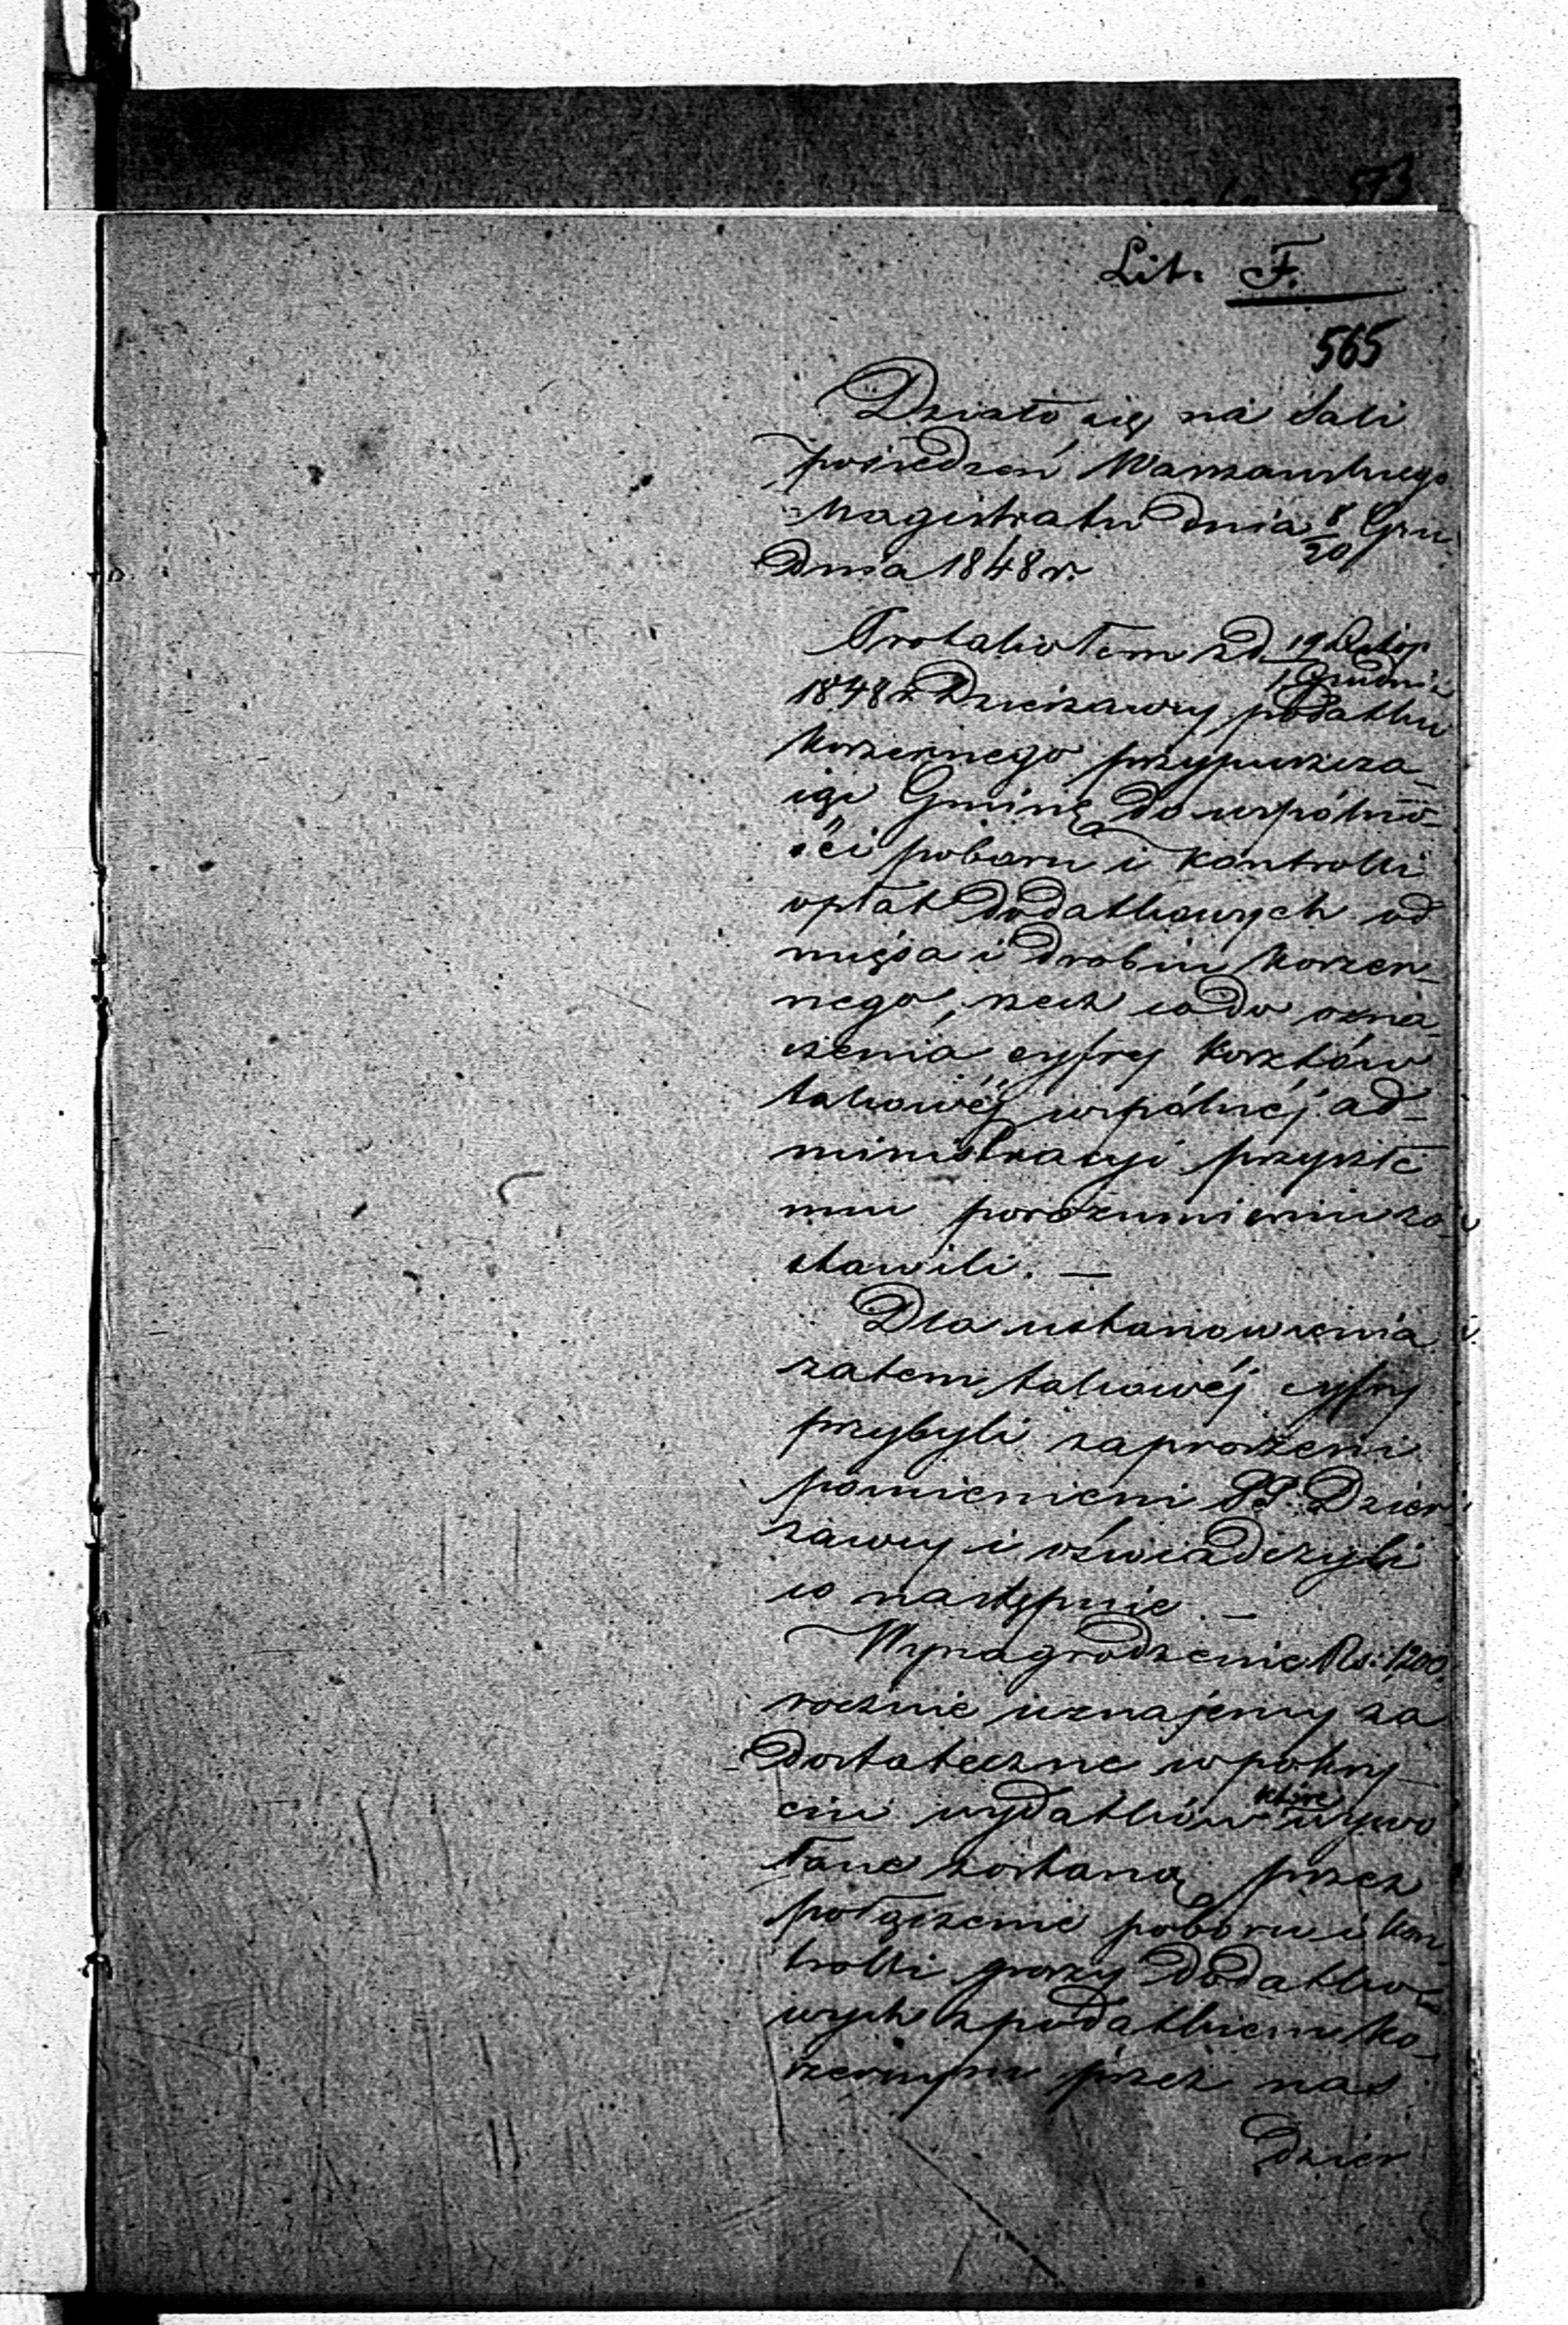 573
Lit. F.
565
Działo się na Sali
posiedzeń Warszawskiego
Magistratu dnia 8/20 Gru-
dnia 1848 r.
Protokołem z d. 19 Listop
1 Grudnia
1848 r. Dzierżawcy podatku
koszernego przypuszcza-
jąc Gminę do wspólno-
ści poboru i kontrolli
opłat dodatkowych od
mięsa i drobiu koszer-
nego, rzecz co do ozna-
czenia cyfry kosztów
takowéj wspólnéj ad-
ministracyi przyszłe
mu porozumieniu zo-
stawili. —
Dla ustanowienia
zatem takowéj cyfry
przybyli zaproszeni
pomienieni PP. Dzier
żawcy i oświadczyli
co następuie. —
Wynagrodzenie Rs: 1200
rocznie uznajemy za
dostateczne w pokry-
ciu wydatków które wywo
łane zostaną przez
połączenie poboru i kon
trolli przy dodatko-
wych z podatkiem ko-
szernym przez nas
dzier